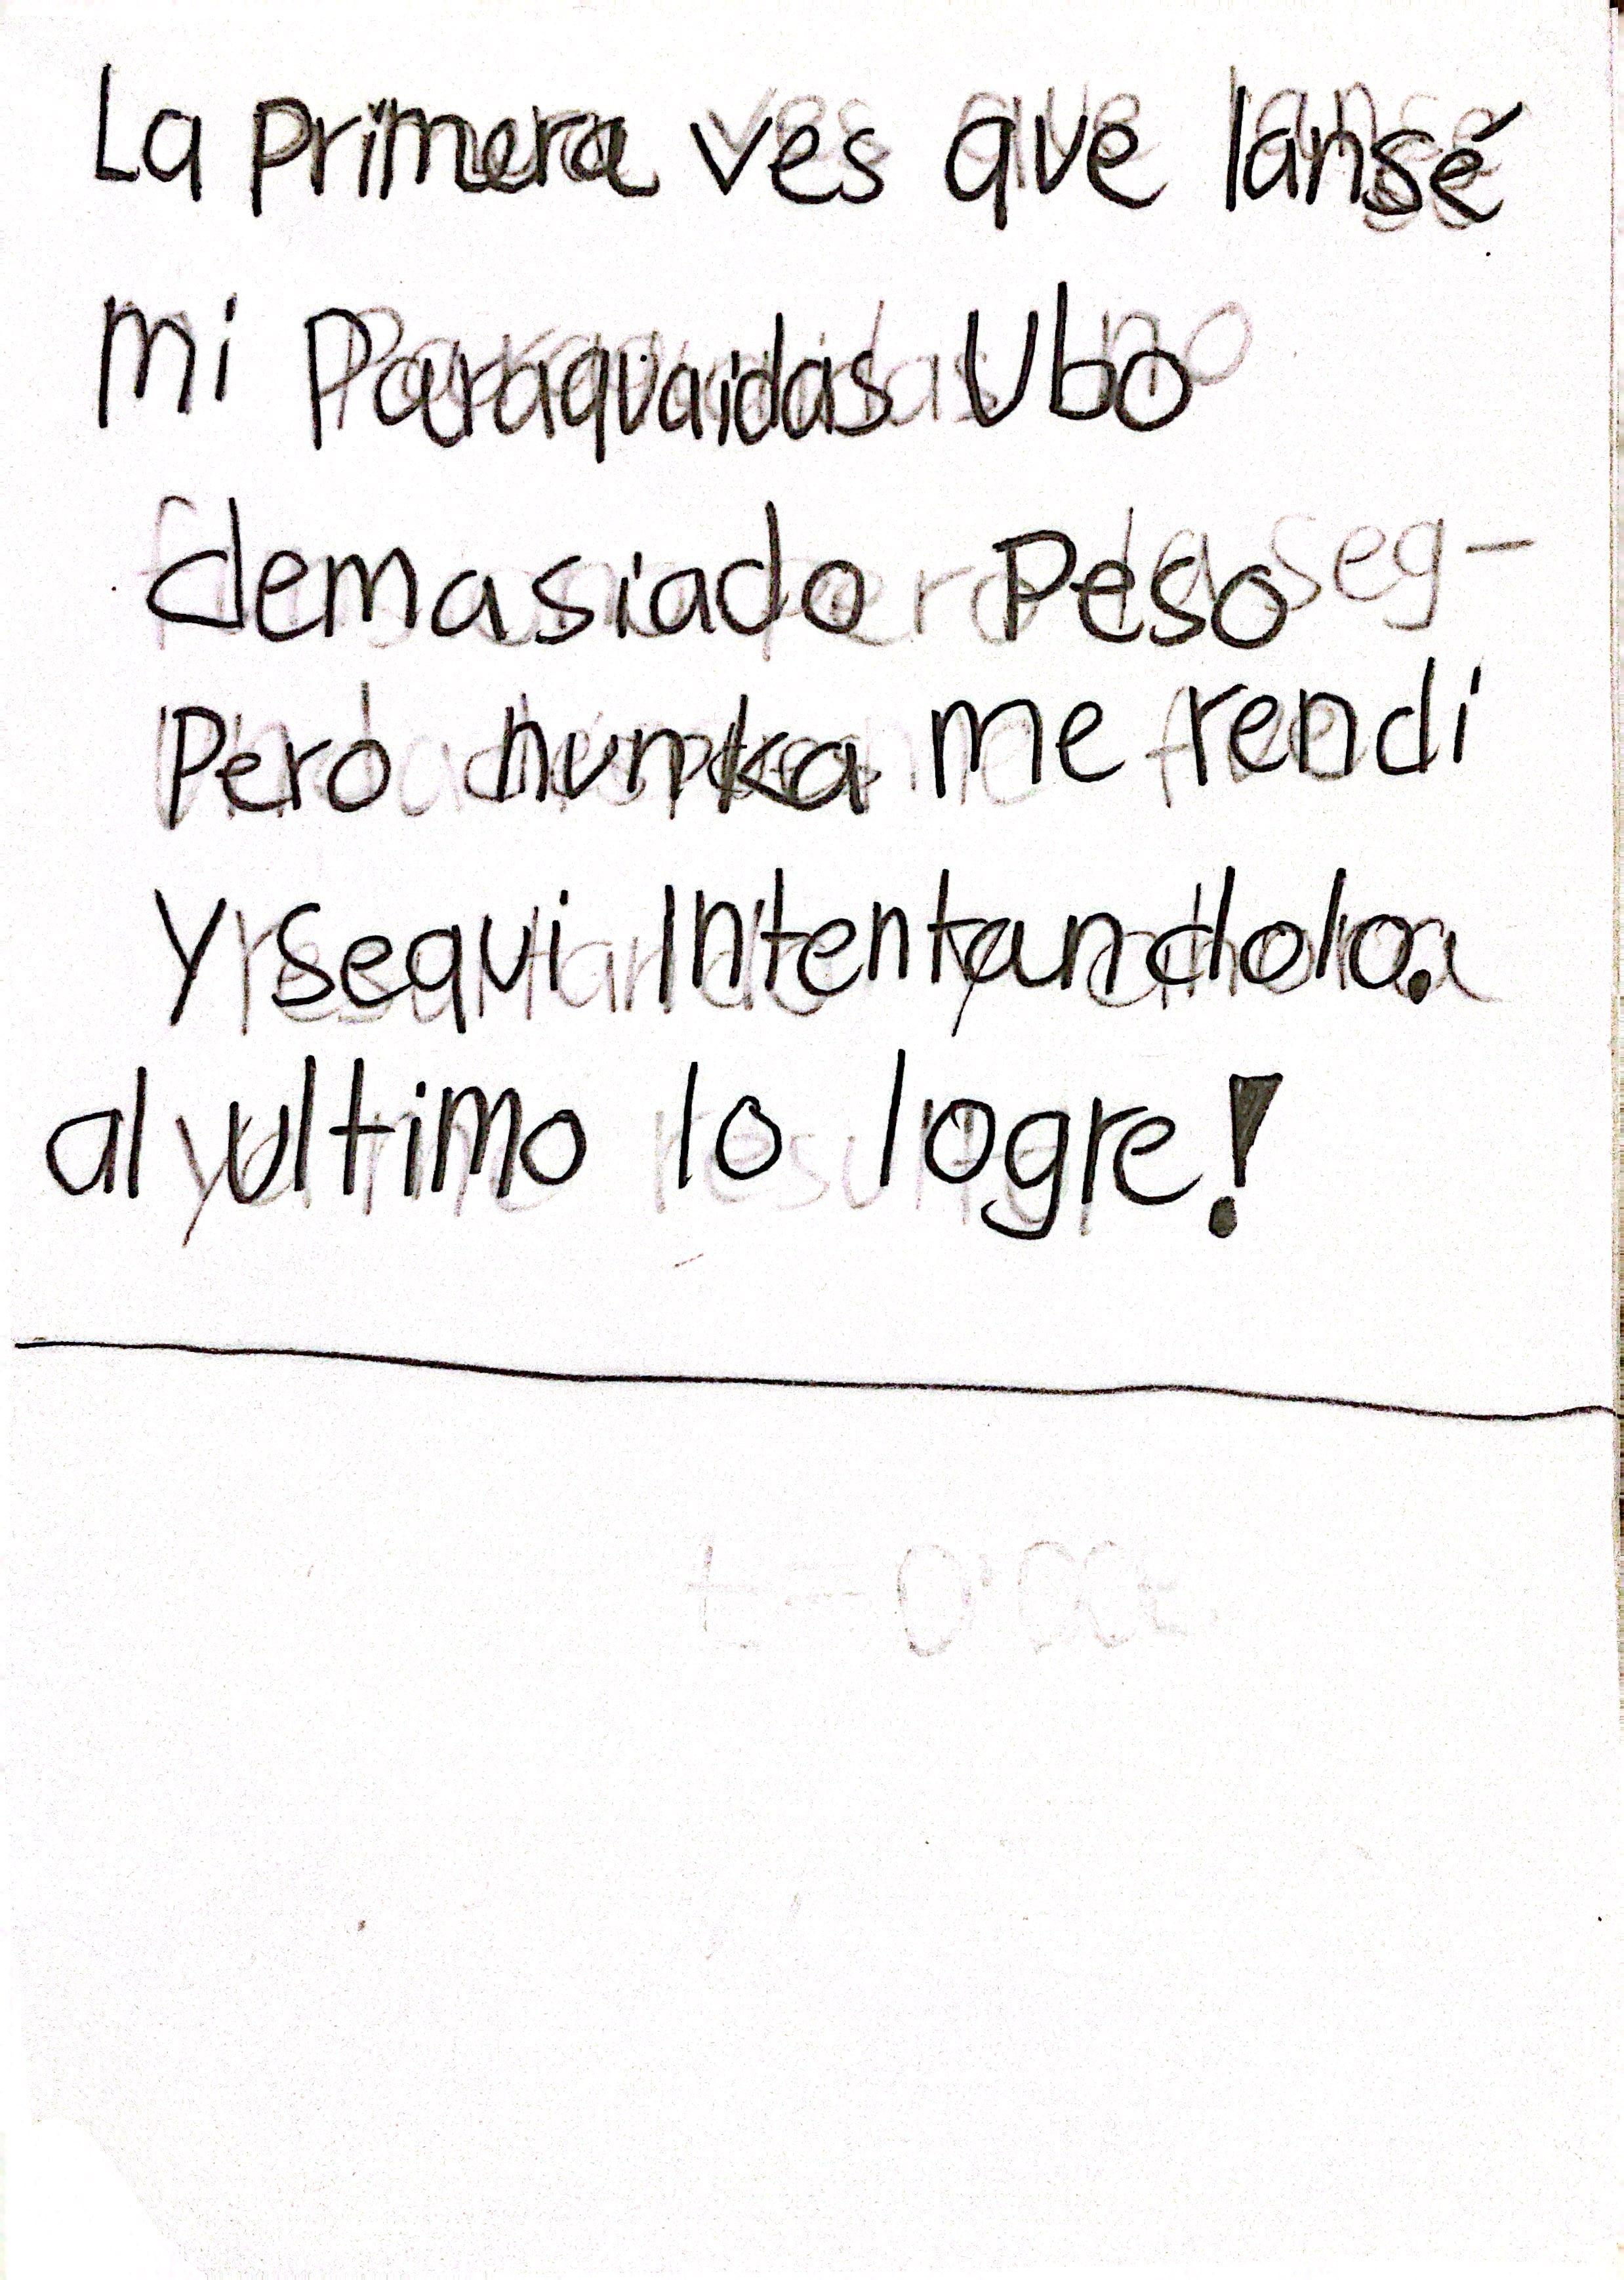 La primera ves que lansé
mi Paraquaidas Ubo
demasiado Peso
Pero nunka me rendi
Y sequi Intentandolo.
al ultimo lo logre!